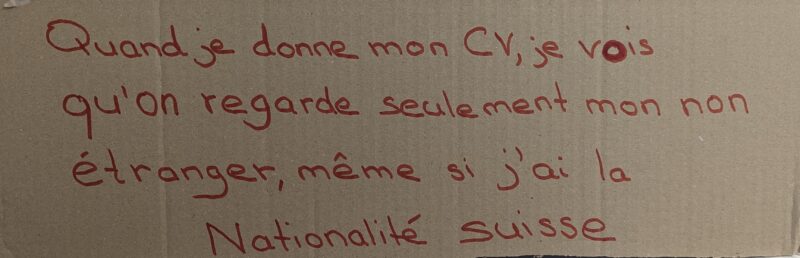 Quand je donne mon CV, je vois
qu'on regarde seulement mon non
étranger, même si j'ai la
Nationalité suisse